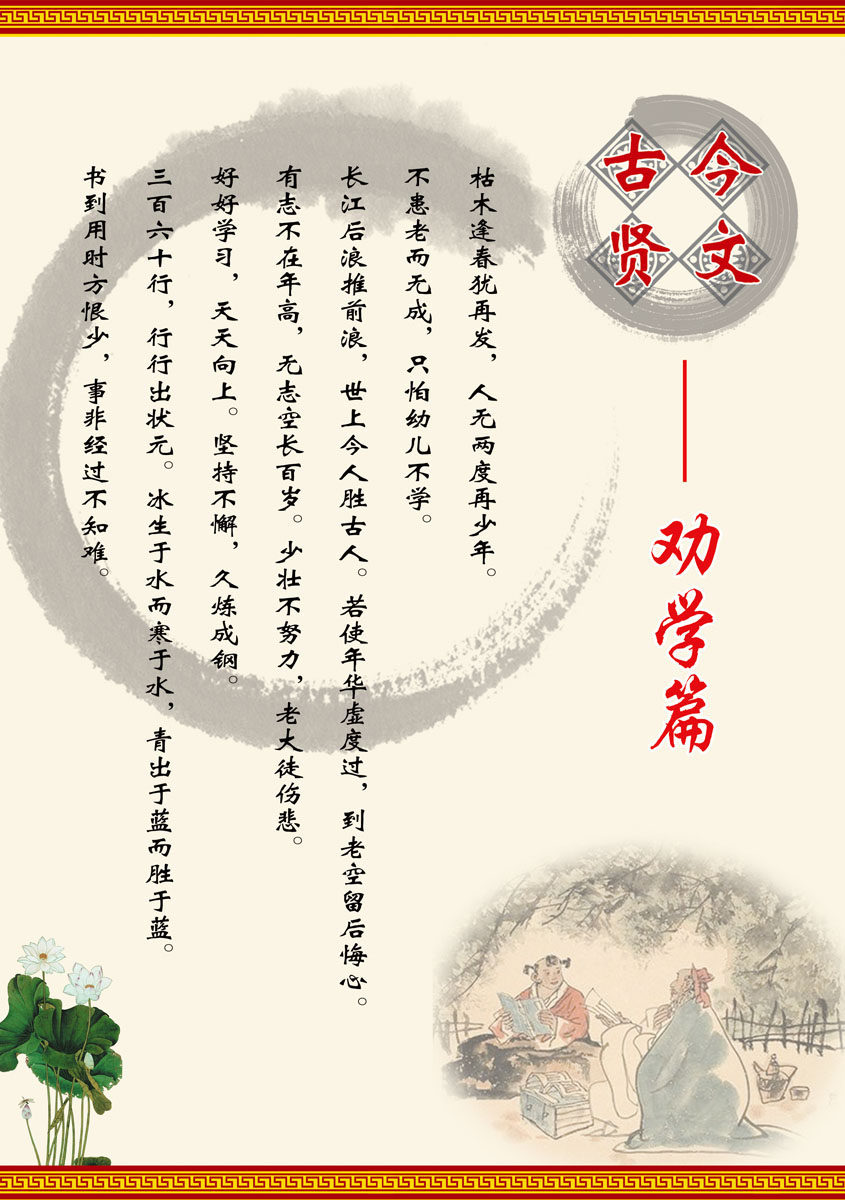 古今
贤文
——劝学篇
枯木逢春犹再发，人无两度再少年。
不患老而无成，只怕幼儿不学。
长江后浪推前浪，世上今人胜古人。若使年华虚度过，到老空留后悔心。
有志不在年高，无志空长百岁。少壮不努力，老大徒伤悲。
好好学习，天天向上。坚持不懈，久炼成钢。
三百六十行，行行出状元。冰生于水而寒于水，青出于蓝而胜于蓝。
书到用时方恨少，事非经过不知难。